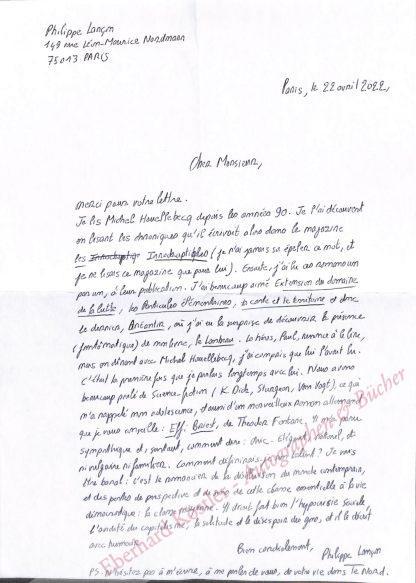 Philippe Lançon
149 rue Léon-Maurice Nordmann
75013 PARIS
Paris, le 22 avril 2022,
Cher Monsieur,
Merci pour votre lettre.
Je lis Michel Houellebecq depuis les années 90. Je l'ai découvert
en lisant les chroniques qu'il écrivait alors dans le magazine
les Inrockuptibles (je n'ai jamais su épeler ce mot, et
je ne lisais ce magazine que pour lui). Ensuite, j'ai lu ses romans un
par un, à leur publication. J'ai beaucoup aimé Extension du domaine
de la lutte, les Particules élémentaires, la carte et le territoire et donc
le dernier, Anéantir, où j'ai eu la surprise de découvrir la présence
(fantomatique) de mon livre, le Lambeau. Le héros, Paul, renonce à le lire,
mais en dînant avec Michel Houellebecq, j'ai compris que lui l'avait lu.
C'était la première fois que je parlais longtemps avec lui. Nous avons
beaucoup parlé de science-fiction (K. Dick, Sturgeon, Van Vogt), ce qui
m'a rappelé mon adolescence, et aussi d'un merveilleux roman allemand
que je vous conseille: Effi Briest, de Theodor Fontane. Il m'a paru
sympathique et, surtout, comment dire: chic. Élégant, naturel, et
ni vulgaire ni familier. Comment définirais-je son talent? Je vais
être banal: c'est le romancier de la désillusion du monde contemporain,
et des pertes de perspective de cette classe essentielle à la vie
démocratique: la classe moyenne. Il décrit fort bien l'hypocrisie sociale,
l'aridité du capitalisme, la solitude et le désespoir des gens, et il le décrit
avec humour.
Bien cordialement,
Philippe Lançon
PS. N'hésitez pas à m'écrire, à me parler de vous, de votre vie dans le Nord.
Eberhard Köstler Autographen & Bücher